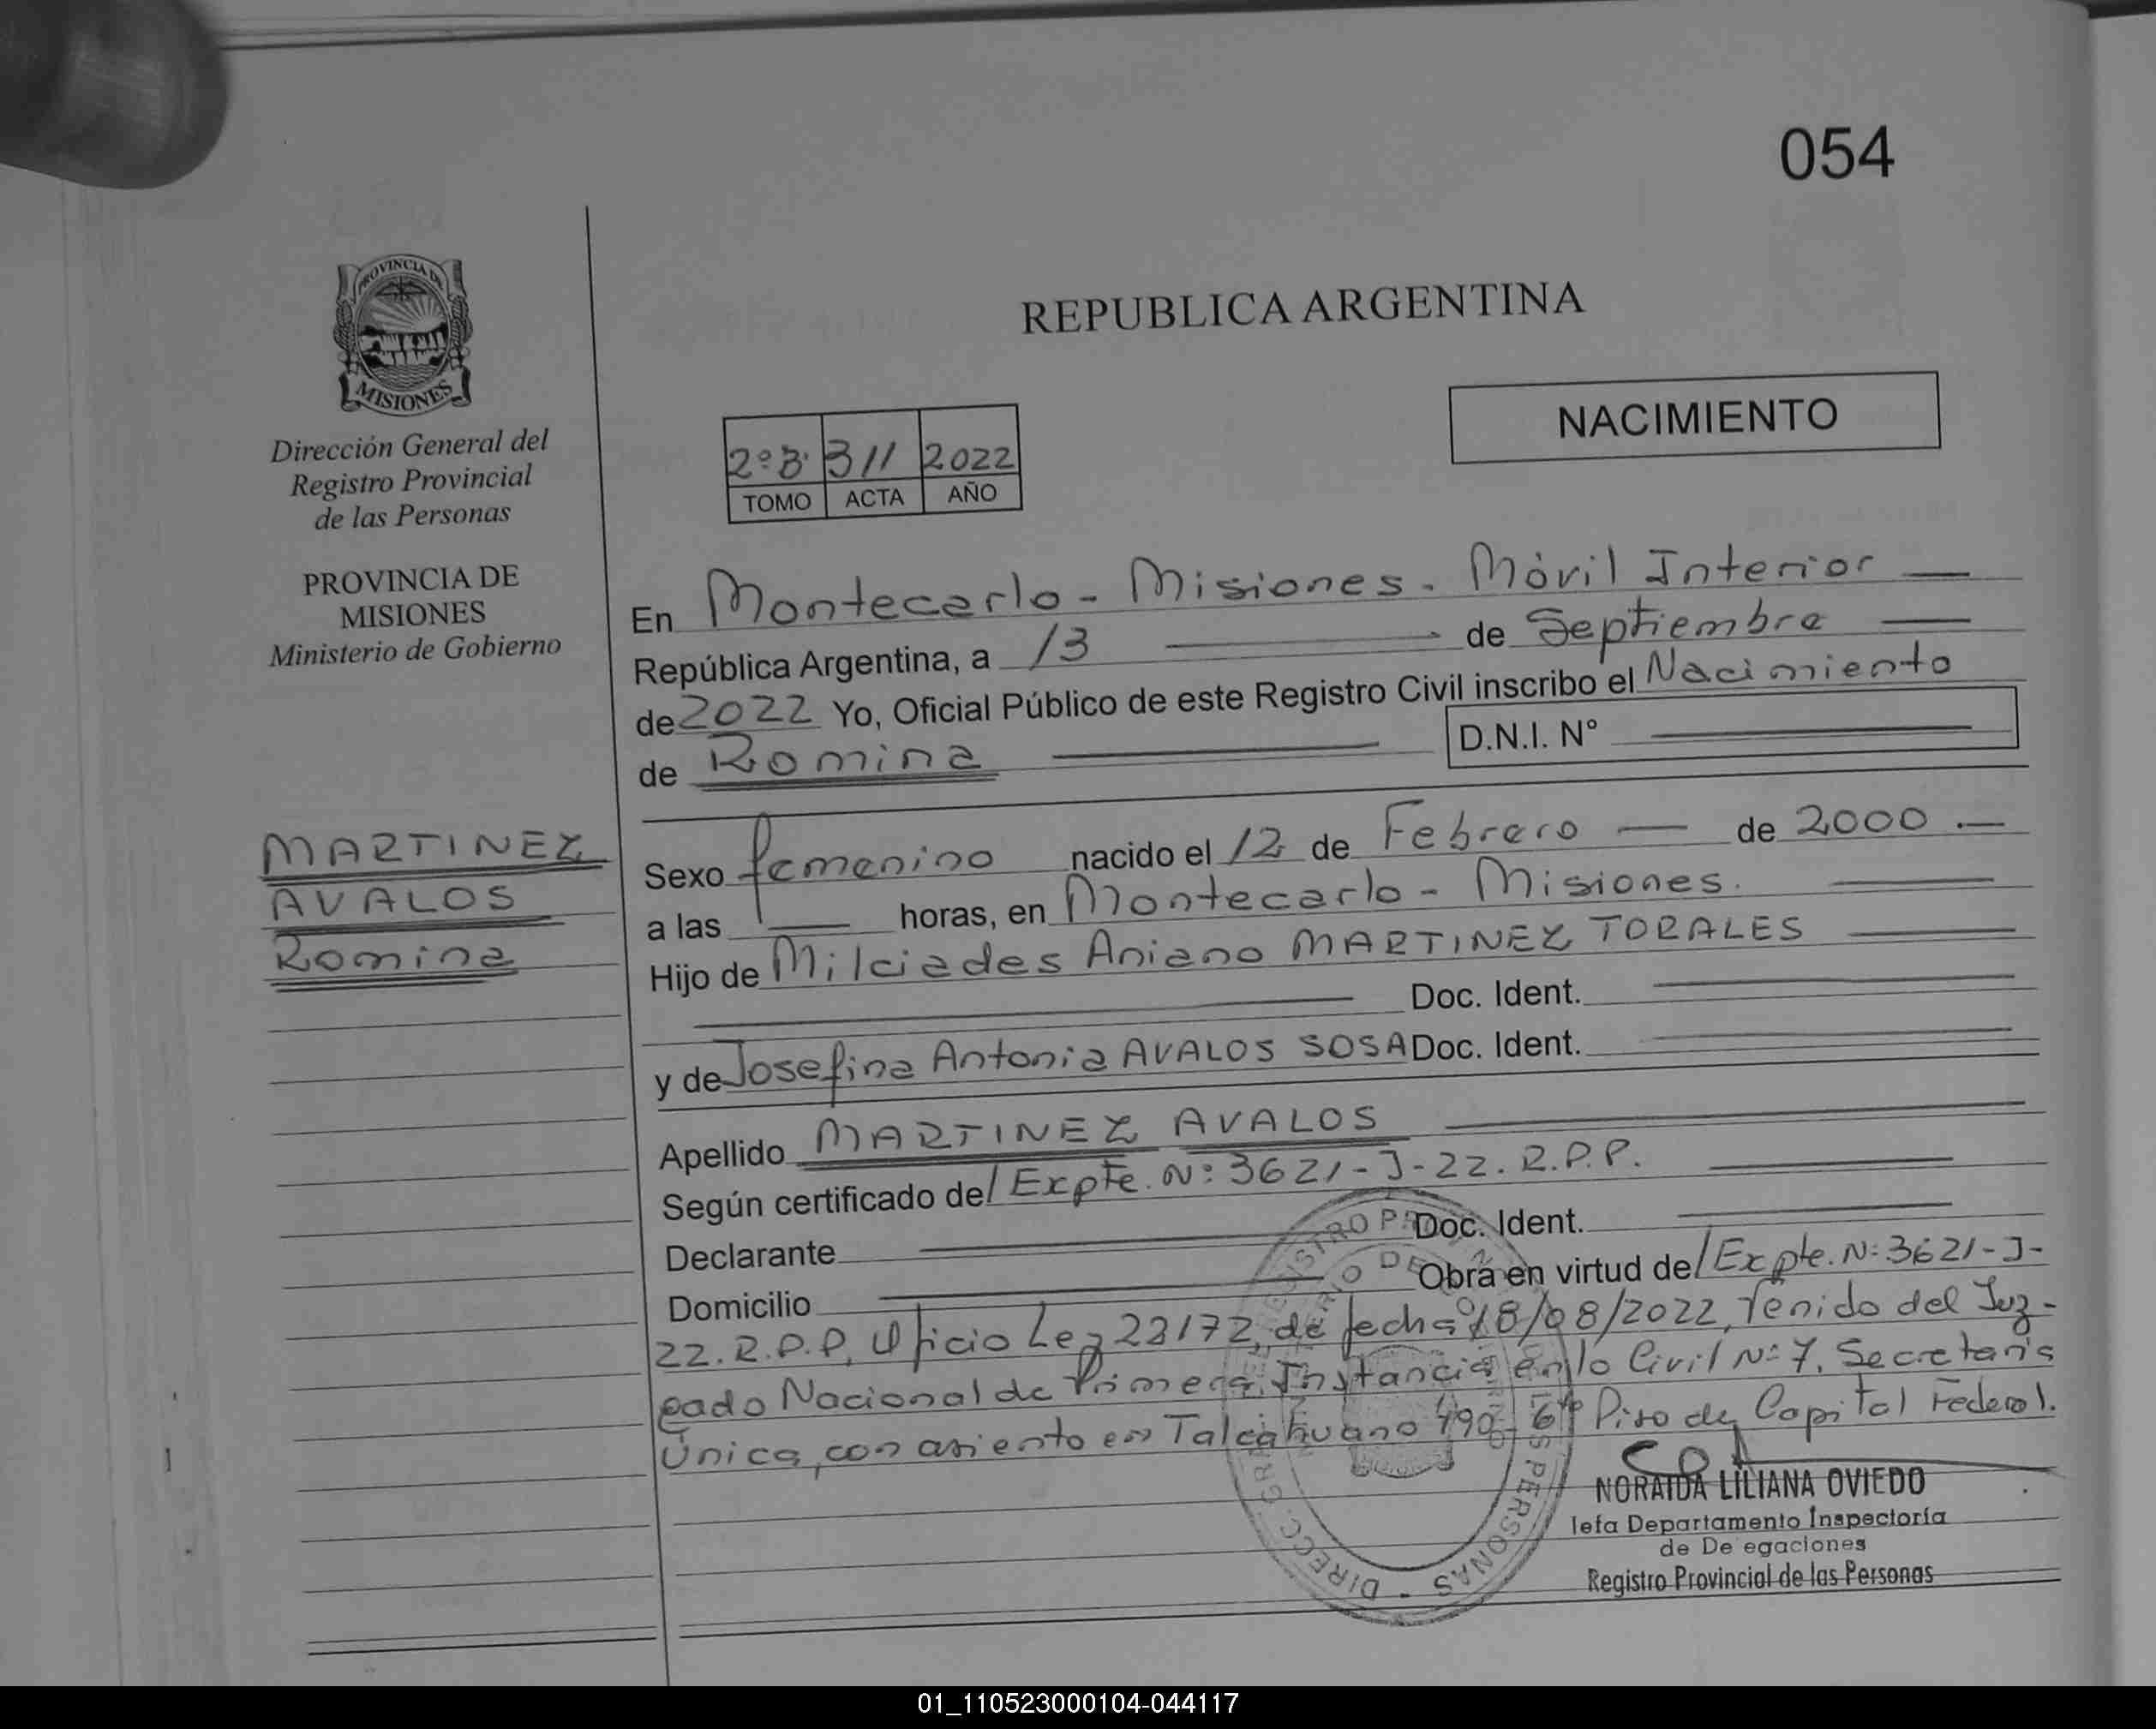 054
PROVINCIA DE
MISIONES
Dirección General del
Registro Provincial
de las Personas
PROVINCIA DE
MISIONES
Ministerio de Gobierno
MARTINEZ
AVALOS
Romina
REPUBLICA ARGENTINA
NACIMIENTO
2º B. 311 2022
TOMO ACTA AÑO
En Montecarlo - Misiones - Móvil Interior
República Argentina, a 13 de Septiembre
de 2022 Yo, Oficial Público de este Registro Civil inscribo el Nacimiento
de Romina D.N.I. Nº
Sexo femenino nacido el 12 de Febrero de 2000.
a las horas, en Montecarlo - Misiones.
Hijo de Milciades Aniano MARTINEZ TORALES
Doc. Ident.
y de Josefina Antonia AVALOS SOSA Doc. Ident.
Apellido MARTINEZ AVALOS
Según certificado del Expte. Nº 3621-J-22. R.P.P.
Declarante Doc. Ident.
Domicilio Obra en virtud del Expte. Nº 3621-J-
22. R.P.P, Oficio Ley 22172, de fecha 18/08/2022, Venido del Juz-
gado Nacional de Primera Instancia en lo Civil Nº 7, Secretaria
Única, con asiento en Talcahuano 490 6to Piso de Capital Federal.
NORAIDA LILIANA OVIEDO
Jefa Departamento Inspectoría
de De egaciones
Registro Provincial de las Personas
DIRECC. GRAL. PERSONAS
01_110523000104-044117